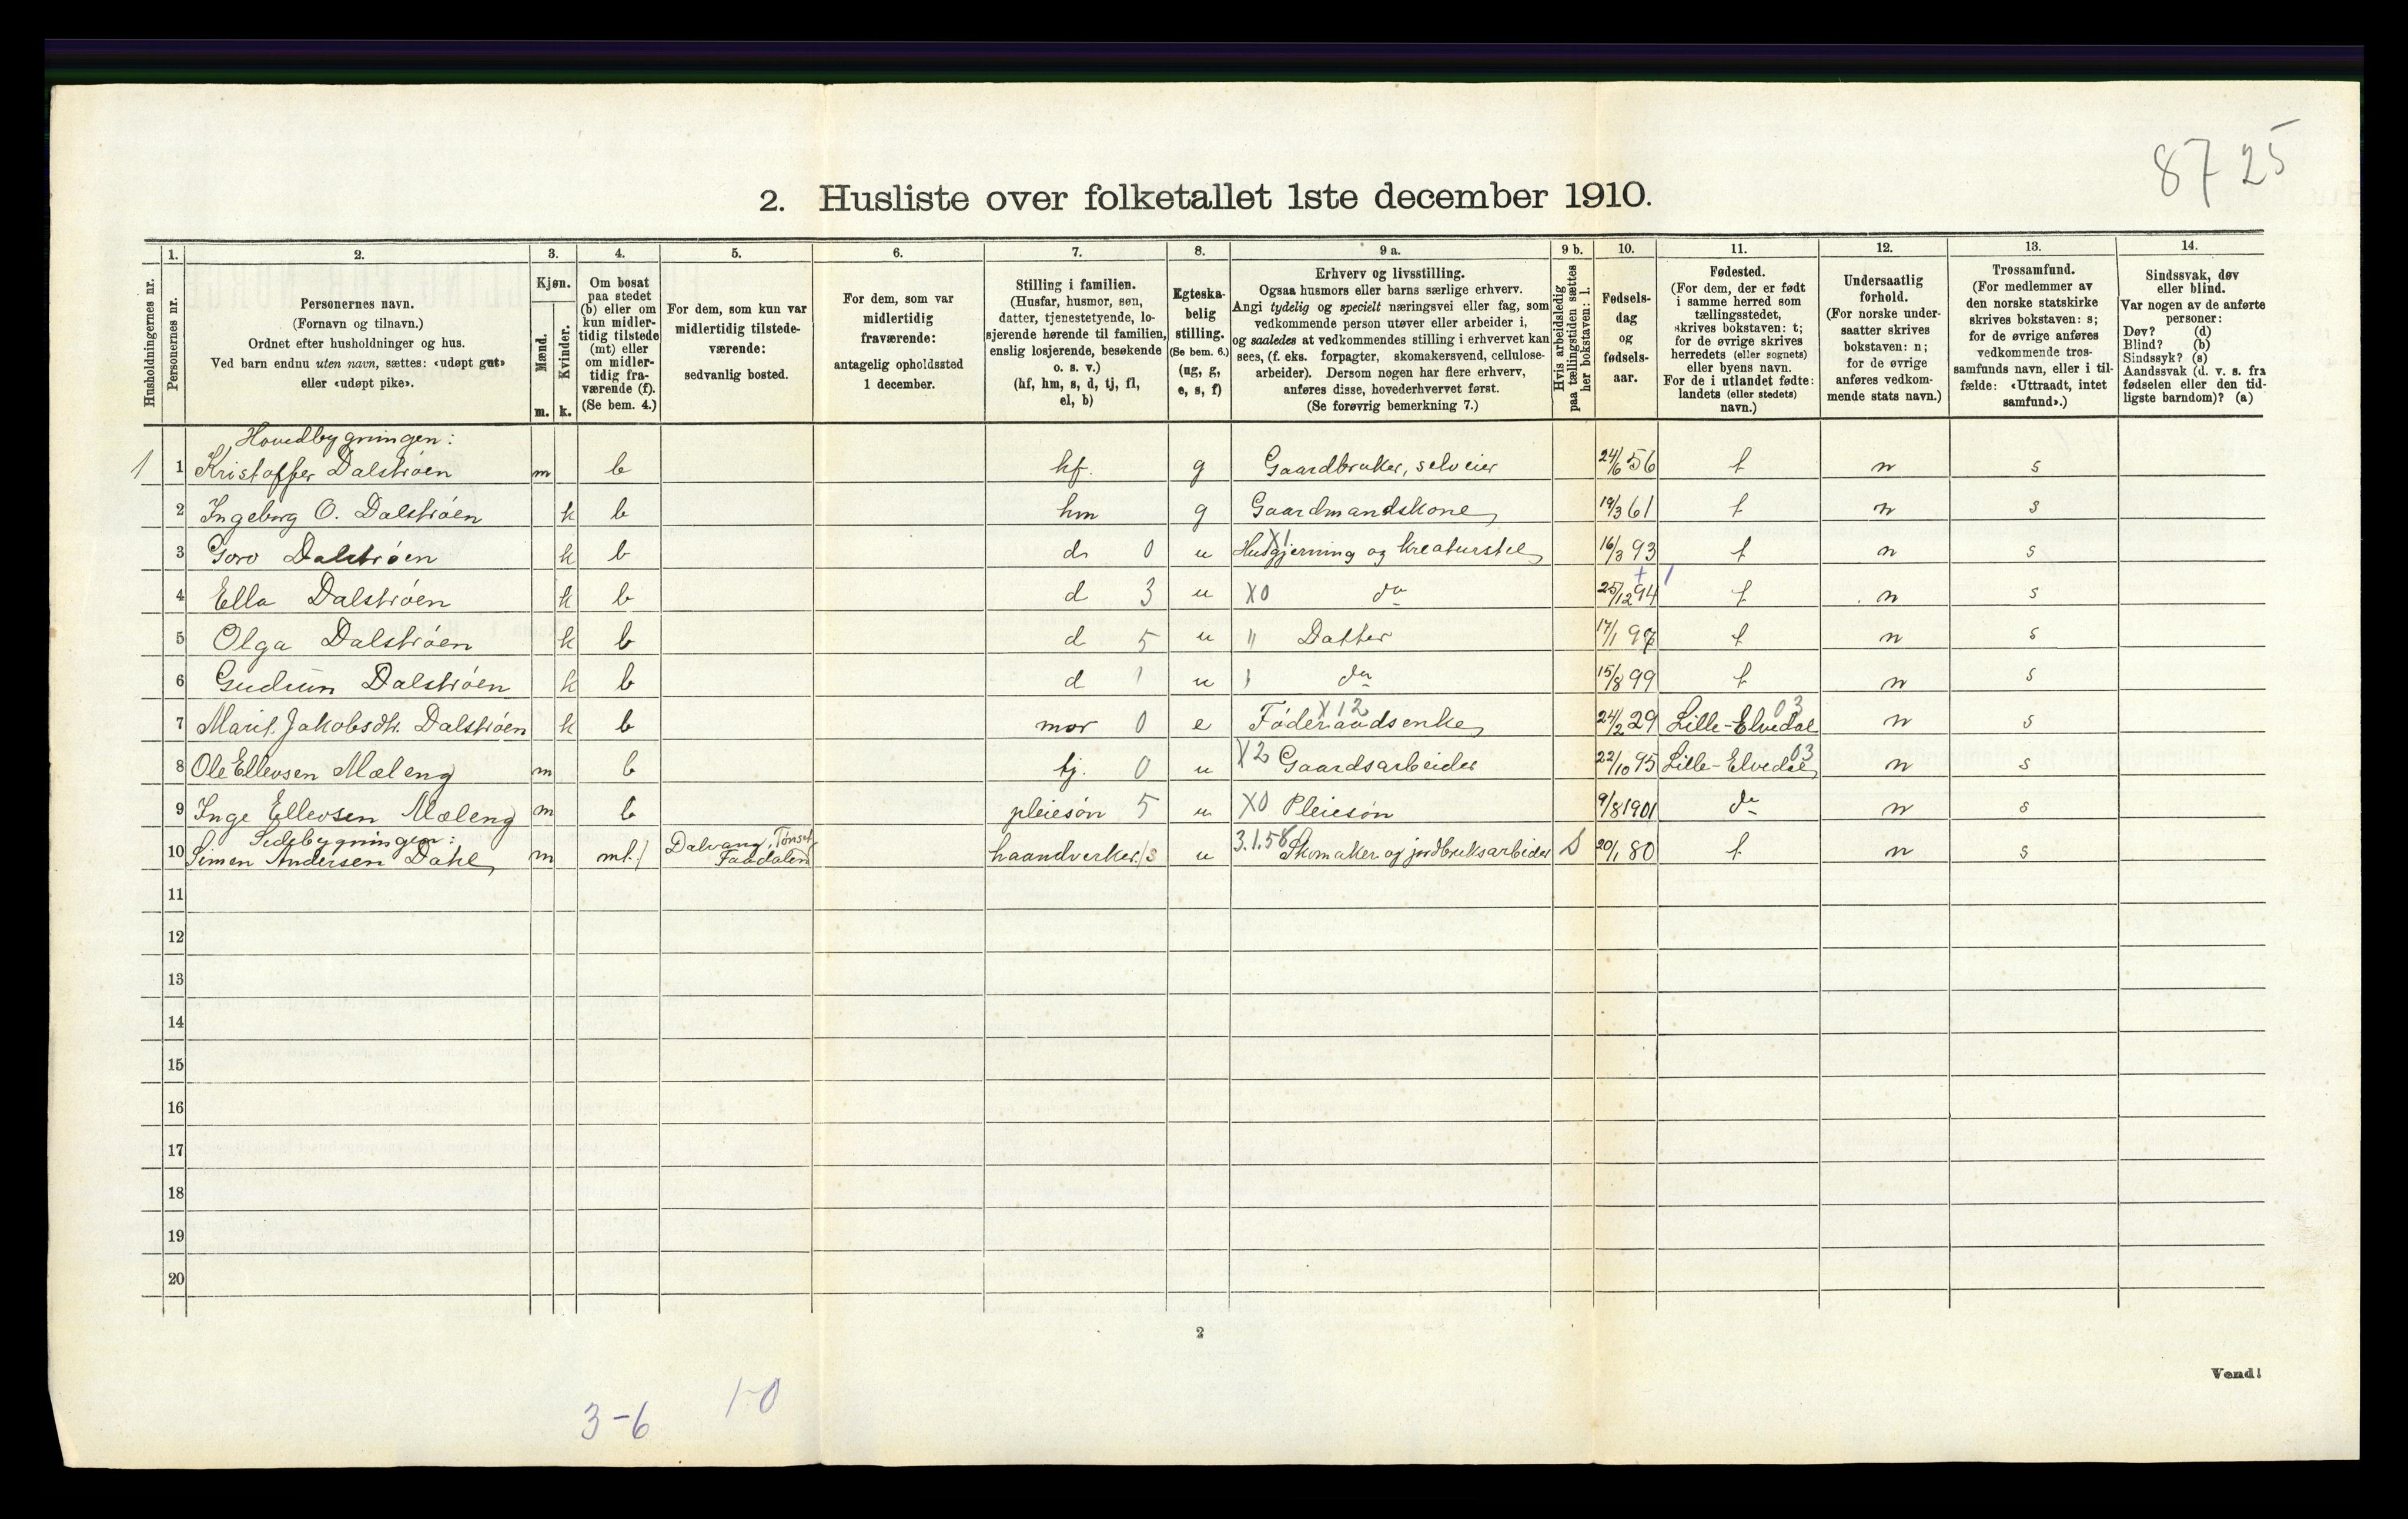 87 25
2. Husliste over folketallet 1ste december 1910.
Husholdningernes nr.
1.
Personernes nr.
2.
Personernes navn.
(Fornavn og tilnavn.)
Ordnet efter husholdninger og hus.
Ved barn endnu uten navn, sættes: «udøpt gut»
eller «udøpt pike».
3.
Kjøn.
Mænd.
m.
Kvinder.
k.
4.
Om bosat
paa stedet
(b) eller om
kun midler-
tidig tilstede
(mt) eller
om midler-
tidig fra-
værende (f).
(Se bem. 4.)
5.
For dem, som kun var
midlertidig tilstede-
værende:
sedvanlig bosted.
6.
For dem, som var
midlertidig
fraværende:
antagelig opholdssted
1 december.
7.
Stilling i familien.
(Husfar, husmor, søn,
datter, tjenestetyende, lo-
sjerende hørende til familien,
enslig losjerende, besøkende
o. s. v.)
(hf, hm, s, d, tj, fl,
el, b)
8.
Egteska-
belig
stilling.
(Se bem. 6.)
(ug, g,
e, s, f)
9 a.
Erhverv og livsstilling.
Ogsaa husmors eller barns særlige erhverv.
Angi tydelig og specielt næringsvei eller fag, som
vedkommende person utøver eller arbeider i,
og saaledes at vedkommendes stilling i erhvervet kan
sees, (f. eks. forpagter, skomakersvend, cellulose-
arbeider). Dersom nogen har flere erhverv,
anføres disse, hovederhvervet først.
(Se forøvrig bemerkning 7.)
9 b.
Hvis arbeidsledig
paa tællingstiden sættes
her bokstaven: l.
10.
Fødsels-
dag
og
fødsels-
aar.
11.
Fødested.
(For dem, der er født
i samme herred som
tællingsstedet,
skrives bokstaven: t;
for de øvrige skrives
herredets (eller sognets)
eller byens navn.
For de i utlandet fødte:
landets (eller stedets)
navn.)
12.
Undersaatlig
forhold.
(For norske under-
saatter skrives
bokstaven: n;
for de øvrige
anføres vedkom-
mende stats navn.)
13.
Trossamfund.
(For medlemmer av
den norske statskirke
skrives bokstaven: s;
for de øvrige anføres
vedkommende tros-
samfunds navn, eller i til-
fælde: «Uttraadt, intet
samfund».)
14.
Sindssvak, døv
eller blind.
Var nogen av de anførte
personer:
Døv? (d)
Blind? (b)
Sindssyk? (s)
Aandssvak (d. v. s. fra
fødselen eller den tid-
ligste barndom)? (a)
Hovedbygningen:
1 1 Kristoffer Dalstrøen m b hf. g Gaardbruker, selveier 24/6 56 t n s
2 Ingeborg O. Dalstrøen k b hm g Gaardmandskone 19/3 61 t n s
3 Goro Dalstrøen k b d 0 u X1 Husgjerning og kreaturstel 16/3 93 t n s
4 Ella Dalstrøen k b d 3 u X0 do 25/12 94 t n s
5 Olga Dalstrøen k b d 5 u " Datter 17/1 97 t n s
6 Gudrun Dalstrøen k b d 1 u do 15/8 99 t n s
7 Marit Jakobsdtr. Dalstrøen k b mor 0 e X12 Føderaadsenke 24/2 29 Lille-Elvedal 03 n s
8 Ole Ellevsen Mæleng m b tj. 0 u X2 Gaardsarbeider 22/10 95 Lille-Elvedal 03 n s
9 Inge Ellevsen Mæleng m b pleiesøn 5 u X0 Pleiesøn 9/8 1901 do n s
Sidebygningen:
10 Simen Andersen Dahl m mt. Dalvang, Tønset Faadalen haandverker s u 3.1.58 Skomaker og jordbruksarbeider 20/1 80 t n s
11
12
13
14
15
16
17
18
19
20
2
Vend!
3-6 1-0